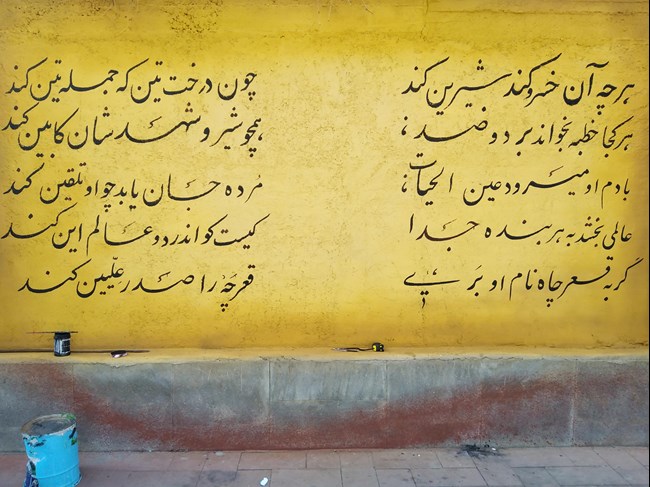 هرچه آن خسرو کند شیرین کند چون درخت تین که جمله تین کند
هر کجا خطبه بخواند بر دو ضد، همچو شیر و شهدشان کابین کند
با دم او میرود عین الحیات، مرده جان یابد چو او تلقین کند
عالمی بخشد به هر بنده جدا کیست کو اندر دو عالم این کند
گر به قعر چاه نام او بَری قعر چَه را صدر عِلّیین کند